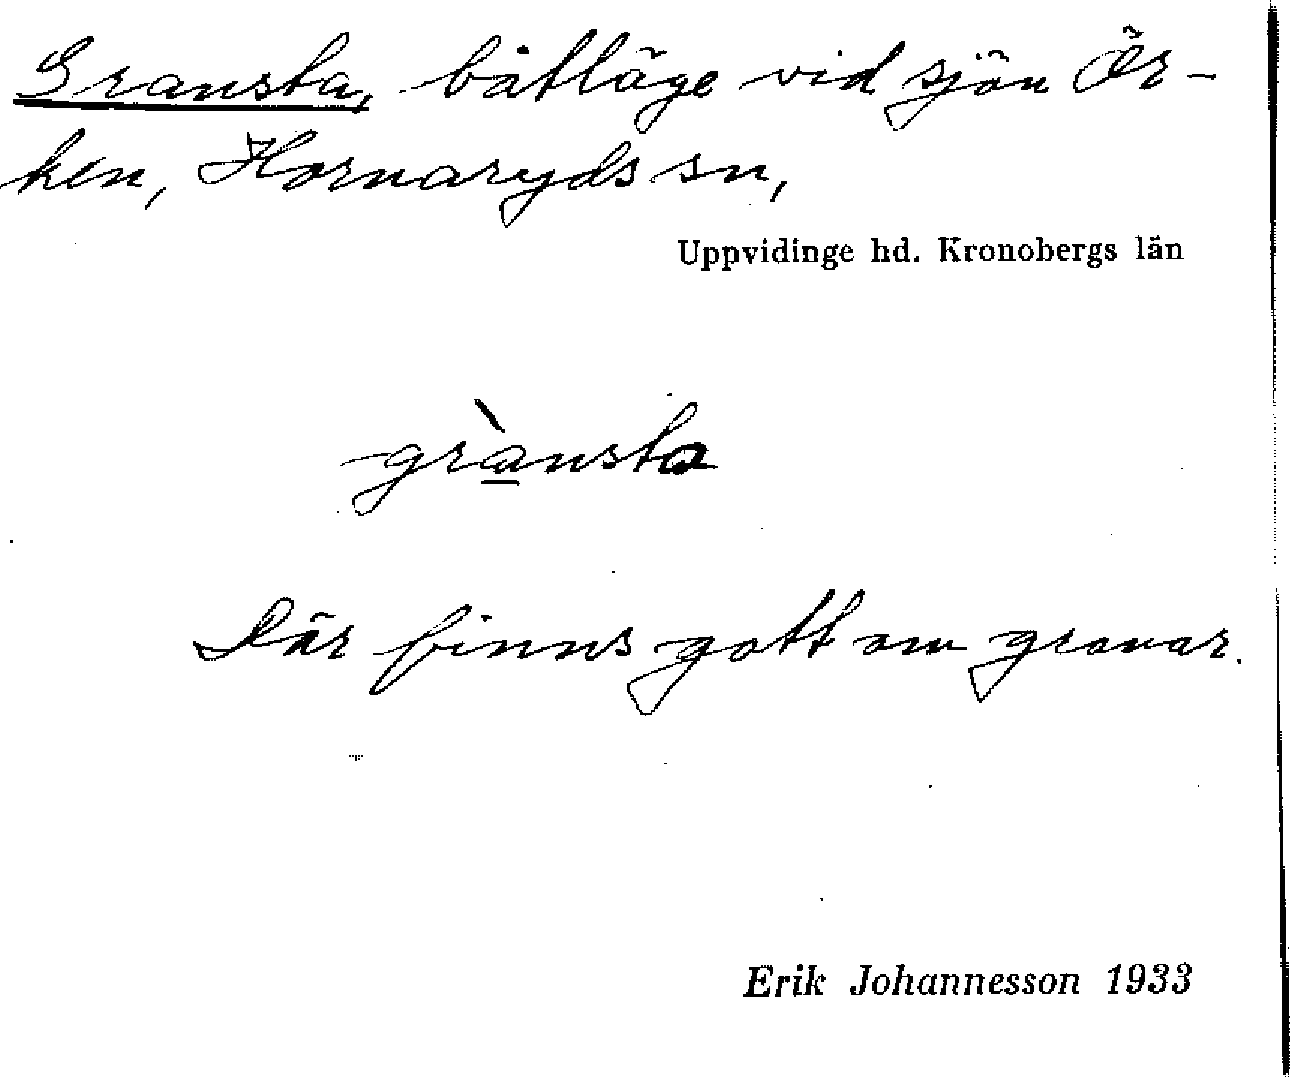 Gransta, båtläge vid sjön Ör-
ken, Hornaryds sn,
Uppvidinge hd. Kronobergs län
grànsta
Där finns gott om granar.
Erik Johannesson 1933